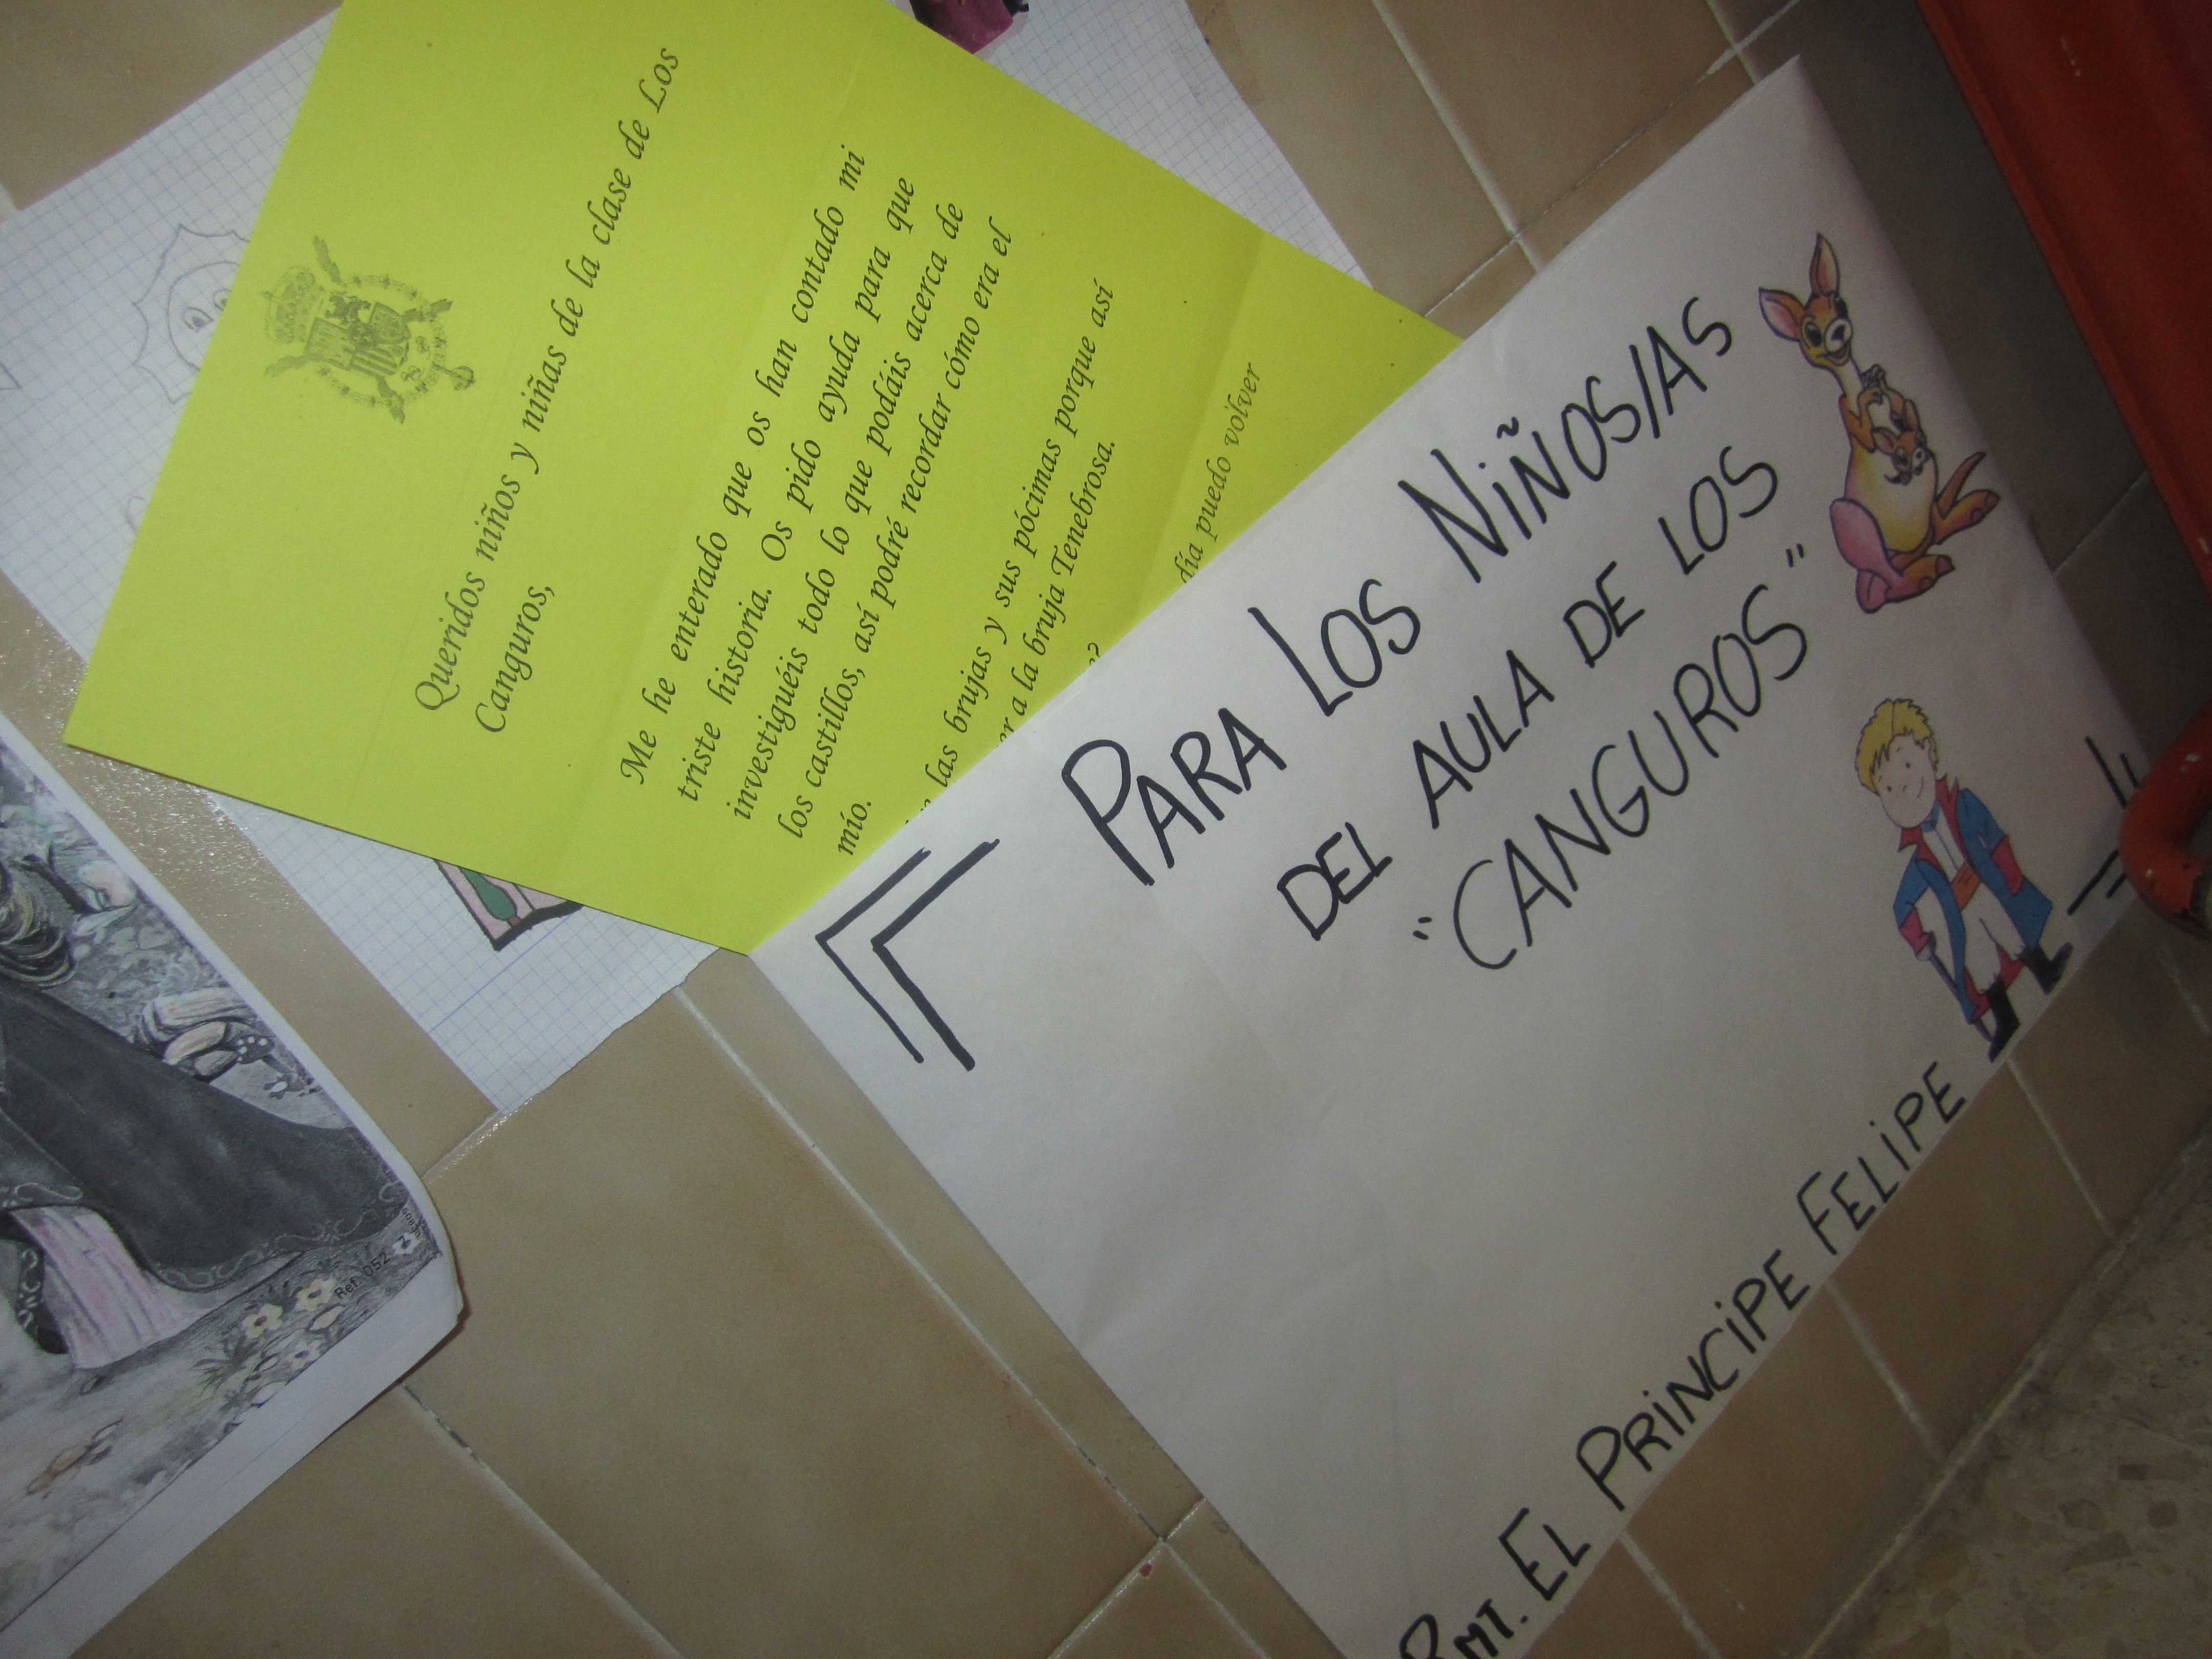 Queridos niños y niñas de la clase de Los
Canguros,
Me he enterado que os han contado mi
triste historia. Os pido ayuda para que
investiguéis todo lo que podáis acerca de
los castillos, así podré recordar cómo era el
mío.
las brujas y sus pócimas porque así
a la bruja Tenebrosa.
día puedo volver
PARA LOS NIÑOS/AS
DEL AULA DE LOS
"CANGUROS"
RMT. EL PRINCIPE FELIPE
Ref. 052